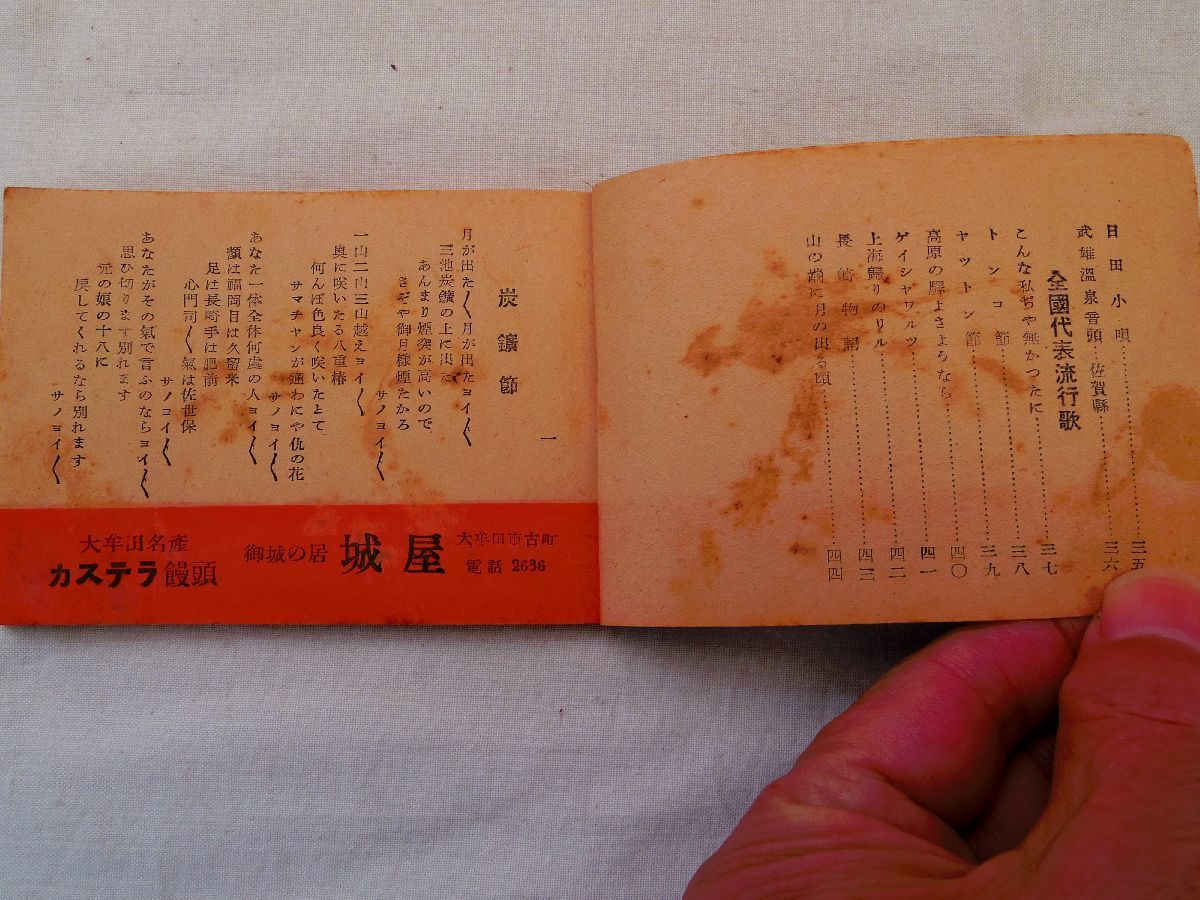 日田小唄…………三五
武雄溫泉音頭…佐賀縣…………三六
全國代表流行歌
こんな私ぢや無かつたに…………三七
トンコ節…………三八
ヤットン節…………三九
高原の驛よさようなら…………四〇
ゲイシャワルツ…………四一
上海歸りのリル…………四二
長崎物語…………四三
山の端に月の出る頃…………四四
炭鑛節
一
月が出た〱月が出たヨイ〱
三池炭鑛の上に出た
あんまり煙突が高いので
さぞや御月樣煙たかろ
サノヨイ〱
一山二山三山越えヨイ〱
奥に咲いたる八重椿
何んぼ色良く咲いたとて
サマチャンが通わにや仇の花
サノヨイ〱
あなた一体全体何處の人ヨイ〱
顏は福岡目は久留米
足は長崎手は肥前
心門司〱氣は佐世保
サノヨイ〱
あなたがその氣で言ふのならヨイ〱
思ひ切ります別れます
元の娘の十八に
戾してくれるなら別れます
サノヨイ〱
大牟田名產
カステラ饅頭
御城の居
城屋
大牟田市古町
電話 2636